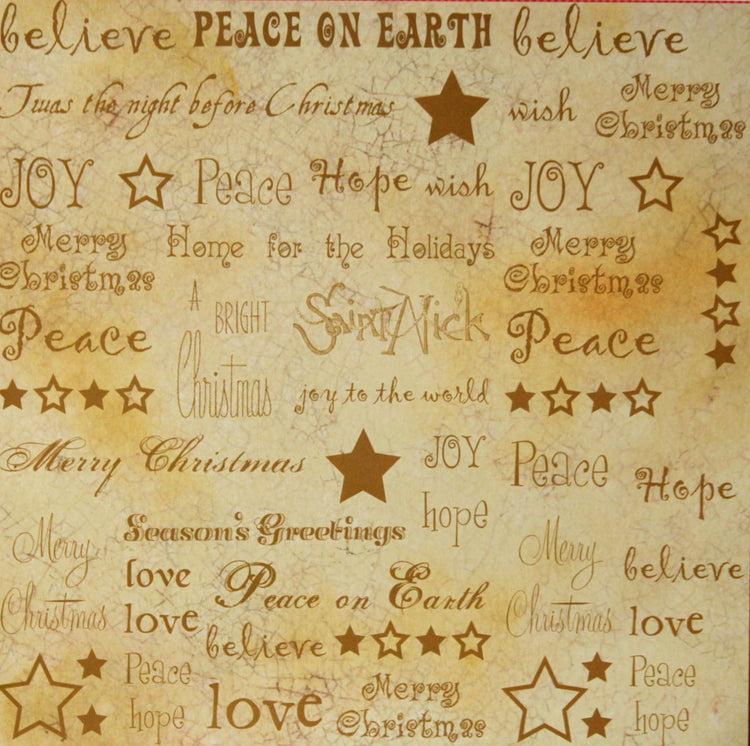 believe PEACE ON EARTH believe
'Twas the night before Christmas wish Merry
Christmas
JOY Peace Hope wish JOY
Merry Home for the Holidays Merry
Christmas Christmas
A BRIGHT Saint Nick
Peace Peace
Christmas joy to the world
Merry Christmas JOY Peace
hope Hope
Season's Greetings
Merry Merry
love believe
Peace on Earth
Christmas love Christmas love
believe
Peace Peace
love Merry
hope Christmas hope